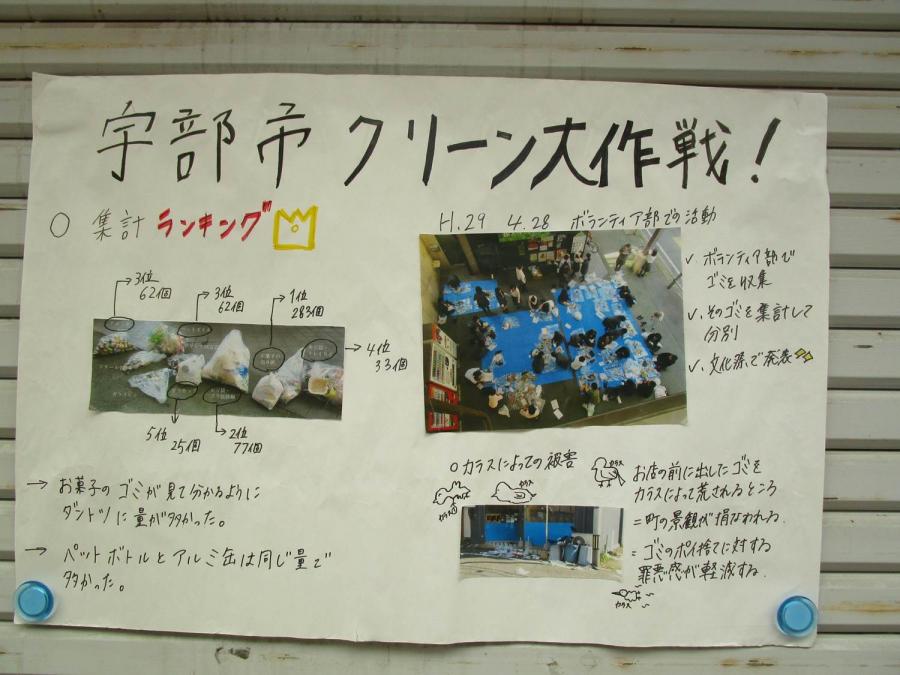 宇部市 クリーン大作戦!
○ 集計 ランキング
3位
62個
3位
62個
1位
283個
→ 4位
33個
5位
25個
2位
77個
→ お菓子のゴミが見て分かるように
ダントツに量が多かった。
→ ペットボトルとアルミ缶は同じ量で
多かった。
H.29 4.28 ボランティア部での活動
✓. ボランティア部で
ゴミを収集
✓. そのゴミを集計して
分別
✓. 文化祭で発表
○ カラスによっての被害
カラス
カラス
カラス
お店の前に出したゴミを
カラスによって荒されるところ
= 町の景観が損なわれる.
= ゴミのポイ捨てに対する
罪悪感が軽減する.
カラス